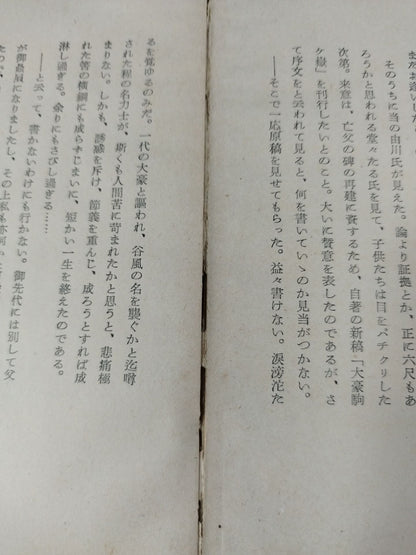 そのうちに当の由川氏が見えた。論より証拠とか、正に六尺もあ
ろうかと思われる堂々たる氏を見て、子供たちは目をパチクリした
次第。来意は、亡父の碑の再建に資するため、自著の新稿「大豪駒
ケ嶽」を刊行したいとのこと。大いに賛意を表したのであるが、さ
て序文をと云われて見ると、何を書いていゝのか見当がつかない。
――そこで一応原稿を見せてもらった。益々書けない。涙滂沱た
るを覚ゆるのみだ。一代の大豪と謳われ、谷風の名を襲ぐかと迄噂
された程の名力士が、斯くも人間苦に苛まれたかと思うと、悲痛極
まりない。しかも、誘惑を斥け、節義を重んじ、成ろうとすれば成
れた筈の横綱にも成らずじまいに、短かい一生を終えたのである。
淋し過ぎる。余りにもさびし過ぎる……
――と云って、書かないわけにも行かない。御先代には別して父
が御贔屓になりましたし、その上私も